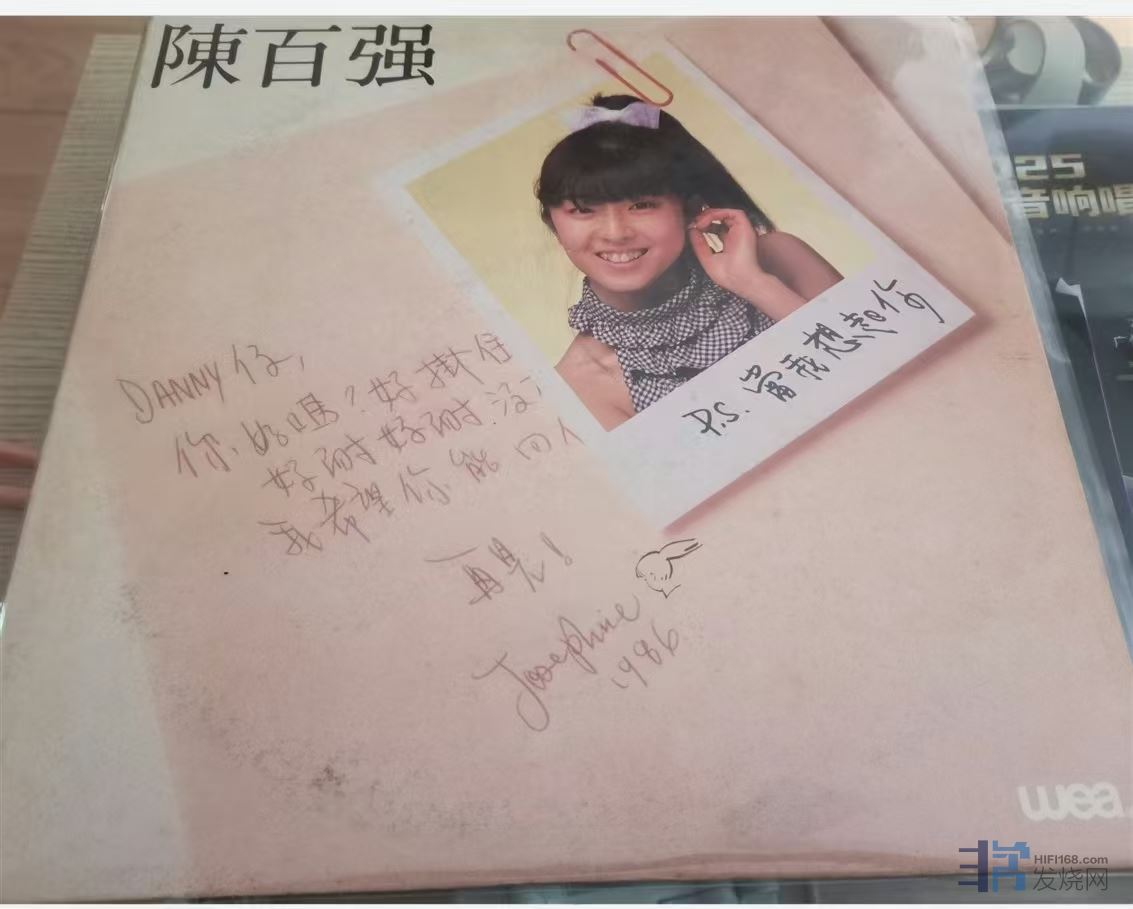 陳百强
DANNY仔,
你好嗎?好掛住
好耐好耐沒
我希望你能回
再見!
Josephine
1986
P.S. 當我想起你
25
音响唱
wea.
HIFI168.com
发烧网